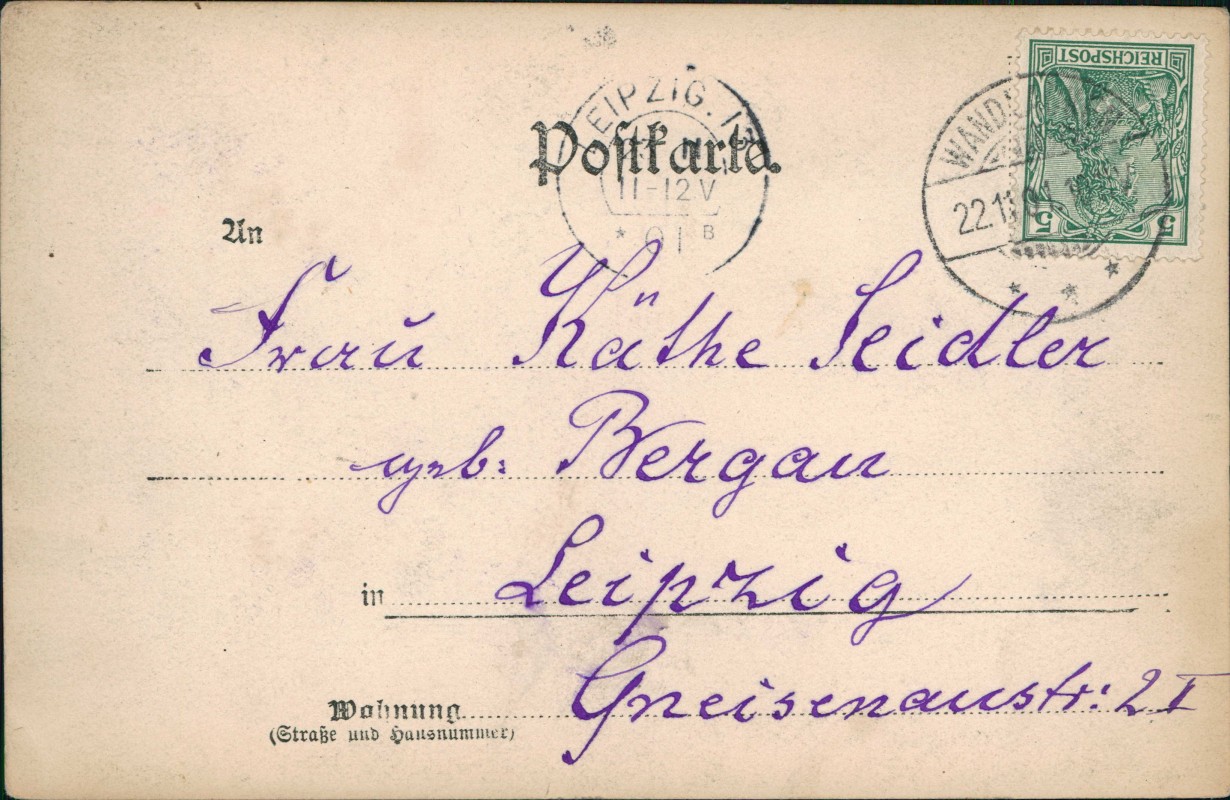 REICHSPOST
5 5
LEIPZIG. 13
11-12V
* 01 B
22.11.01
Postkarte.
An
Frau Käthe Seidler
geb: Bergau
in Leipzig
Wohnung Gneisenaustr: 2 I
(Straße und Hausnummer)